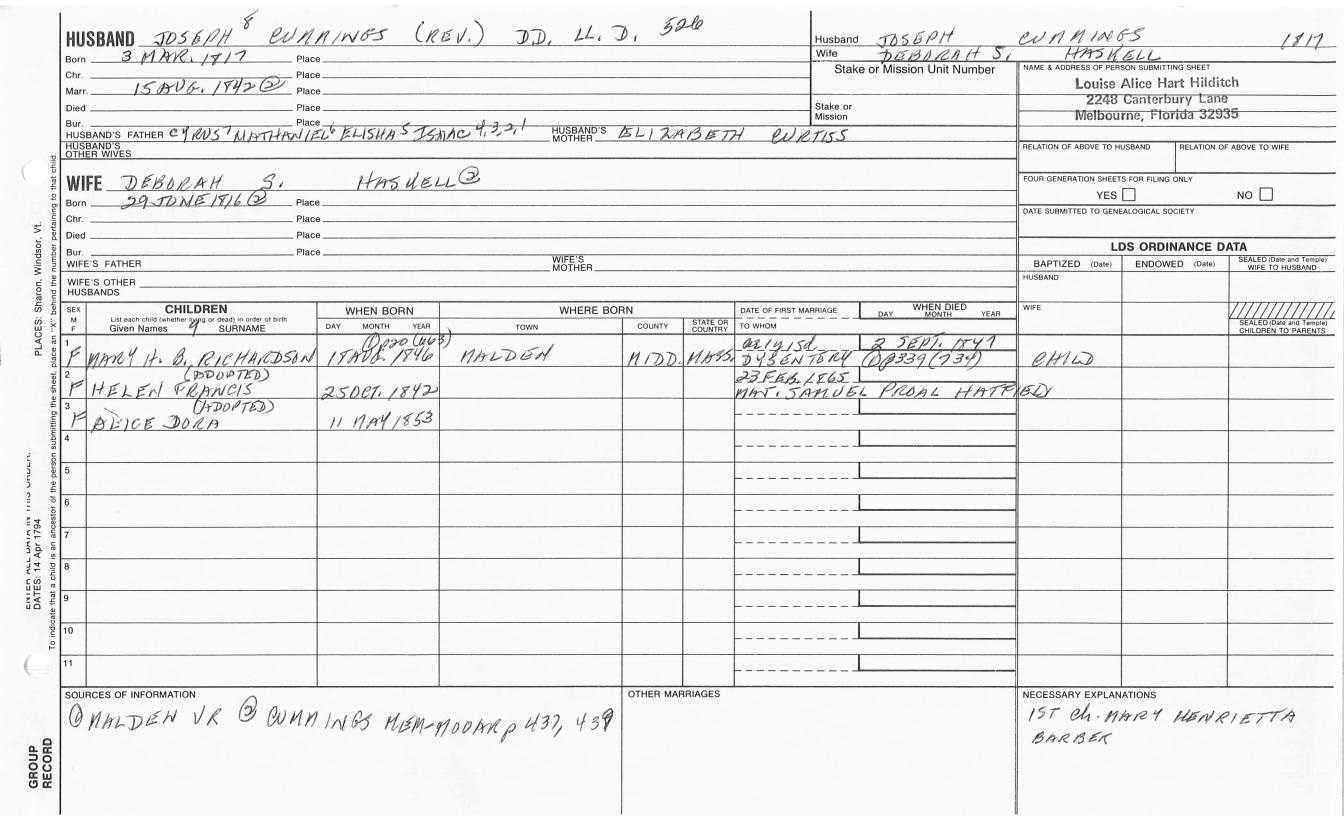 HUSBAND JOSEPH 8 CUMMINGS (REV.) DD, LL. D. 526
Born 3 MAR. 1817 Place
Chr. Place
Marr. 15 AUG. 1842 ② Place
Died Place
Bur. Place
HUSBAND'S FATHER CYRUS 7 NATHANIEL 6 ELISHA 5 ISAAC 4,3,2,1 HUSBAND'S MOTHER ELIZABETH CURTISS
HUSBAND'S OTHER WIVES
Husband JOSEPH CUMMINGS 1817
Wife DEBORAH S. HASKELL
Stake or Mission Unit Number
Stake or Mission
NAME & ADDRESS OF PERSON SUBMITTING SHEET
Louise Alice Hart Hilditch
2248 Canterbury Lane
Melbourne, Florida 32935
RELATION OF ABOVE TO HUSBAND RELATION OF ABOVE TO WIFE
FOUR GENERATION SHEETS FOR FILING ONLY
YES NO
DATE SUBMITTED TO GENEALOGICAL SOCIETY
WIFE DEBORAH S. HASKELL ②
Born 29 JUNE 1816 ② Place
Chr. Place
Died Place
Bur. Place
WIFE'S FATHER WIFE'S MOTHER
WIFE'S OTHER HUSBANDS
LDS ORDINANCE DATA
BAPTIZED (Date) ENDOWED (Date) SEALED (Date and Temple) WIFE TO HUSBAND
HUSBAND
WIFE
SEALED (Date and Temple) CHILDREN TO PARENTS
SEX M F
CHILDREN
List each child (whether living or dead) in order of birth
Given Names 9 SURNAME
WHEN BORN
DAY MONTH YEAR
WHERE BORN
TOWN COUNTY STATE OR COUNTRY
DATE OF FIRST MARRIAGE
TO WHOM
WHEN DIED
DAY MONTH YEAR
1 ① p20 (463) 2 SEPT. 1847
F MARY H. B. RICHARDSON 17 AUG. 1846 MALDEN MIDD. MASS. DYSENTERY ① p339 (734) CHILD
2 (ADOPTED) 23 FEB. 1865
F HELEN FRANCIS 25 OCT. 1842 MAJ. SAMUEL PROAL HATFIELD
3 (ADOPTED)
F ALICE DORA 11 MAY 1853
4
5
6
7
8
9
10
11
SOURCES OF INFORMATION
① MALDEN VR ② CUMMINGS MEM-MOOAR p 437, 439
OTHER MARRIAGES
NECESSARY EXPLANATIONS
1ST Ch. MARY HENRIETTA
BARBER
PLACES: Sharon, Windsor, Vt.
DATES: 14 Apr 1794
To indicate that a child is an ancestor of the person submitting the sheet, place an "X" behind the number pertaining to that child.
GROUP
RECORD